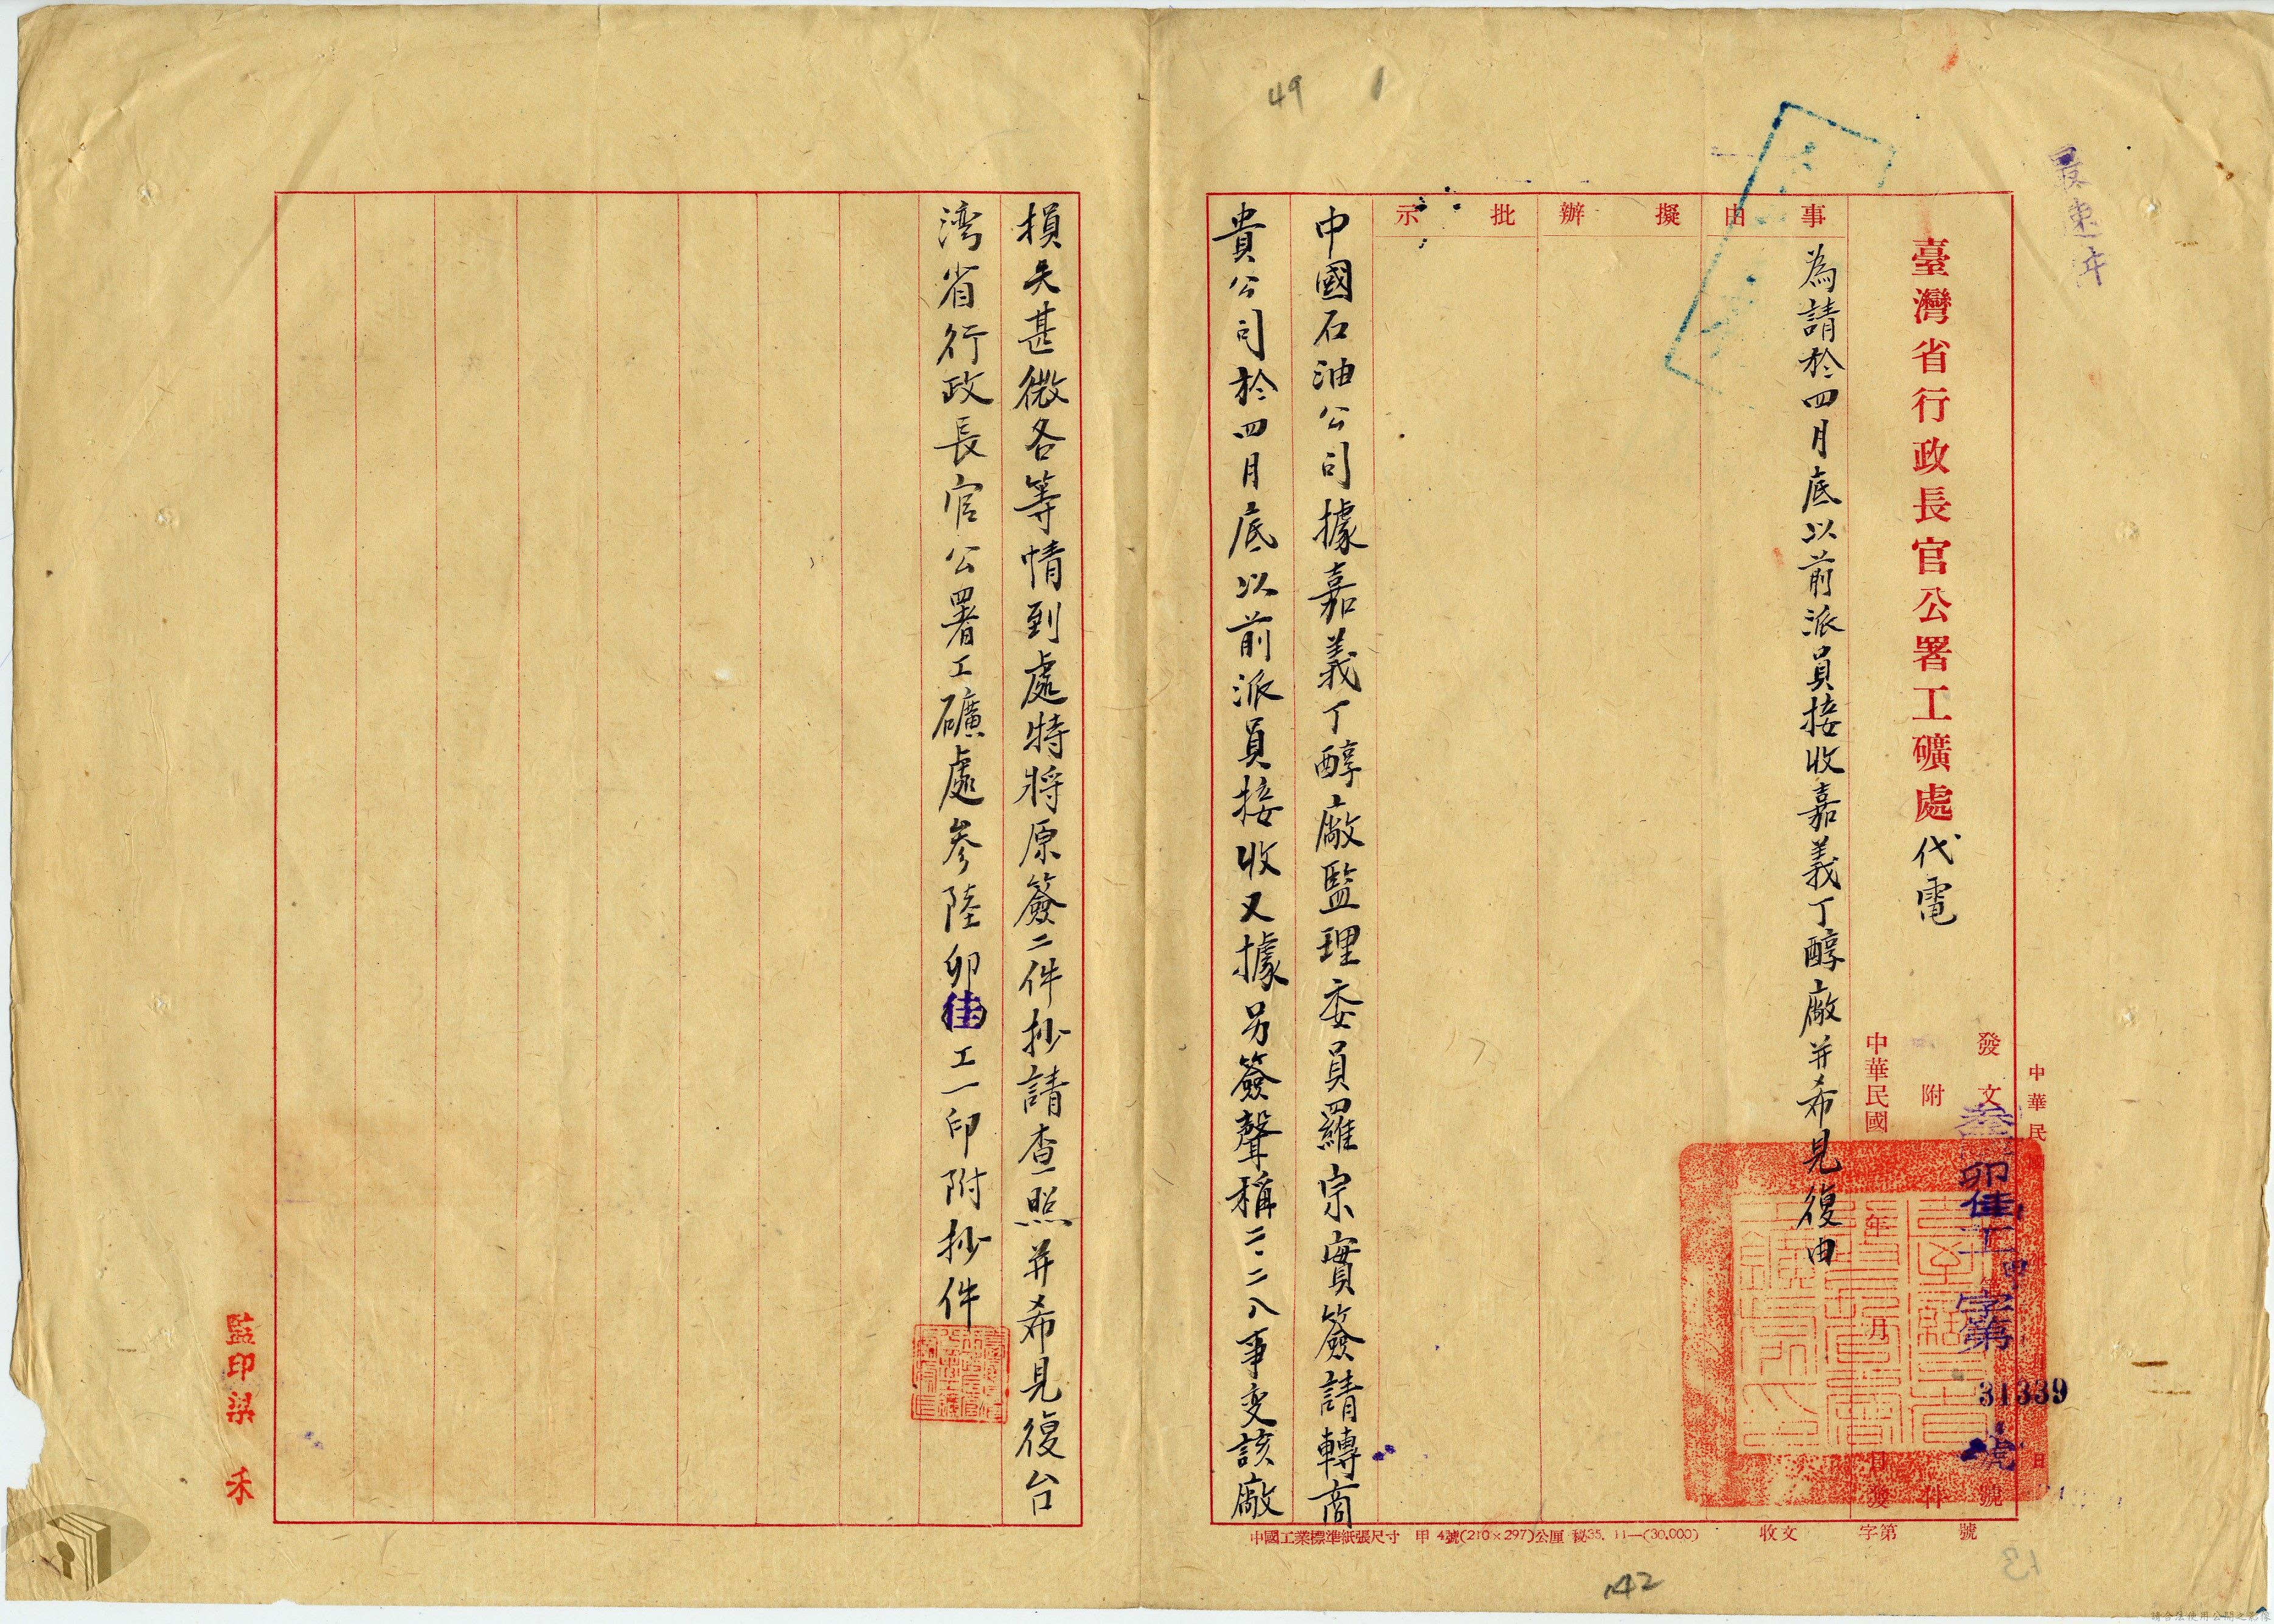 最速件
49 1
臺灣省行政長官公署工礦處代電
中華民
發文
叁卯佳工甲字第31339號
附件
中華民國年月日發
事由
為請於四月底以前派員接收嘉義丁醇廠并希見復由
擬辦
批示
中國石油公司據嘉義丁醇廠監理委員羅宗實簽請轉商
貴公司於四月底以前派員接收又據另簽聲稱二.二八事变該廠
損失甚微各等情到處特將原簽二件抄請查照并希見復台
湾省行政長官公署工礦處參陸卯佳工一印附抄件
監印梁 禾
收文 字第 號
中國工業標準紙張尺寸 甲 4號(210×297)公厘 秘35. 11—(30.000)
142
13
請合法使用公開之影像